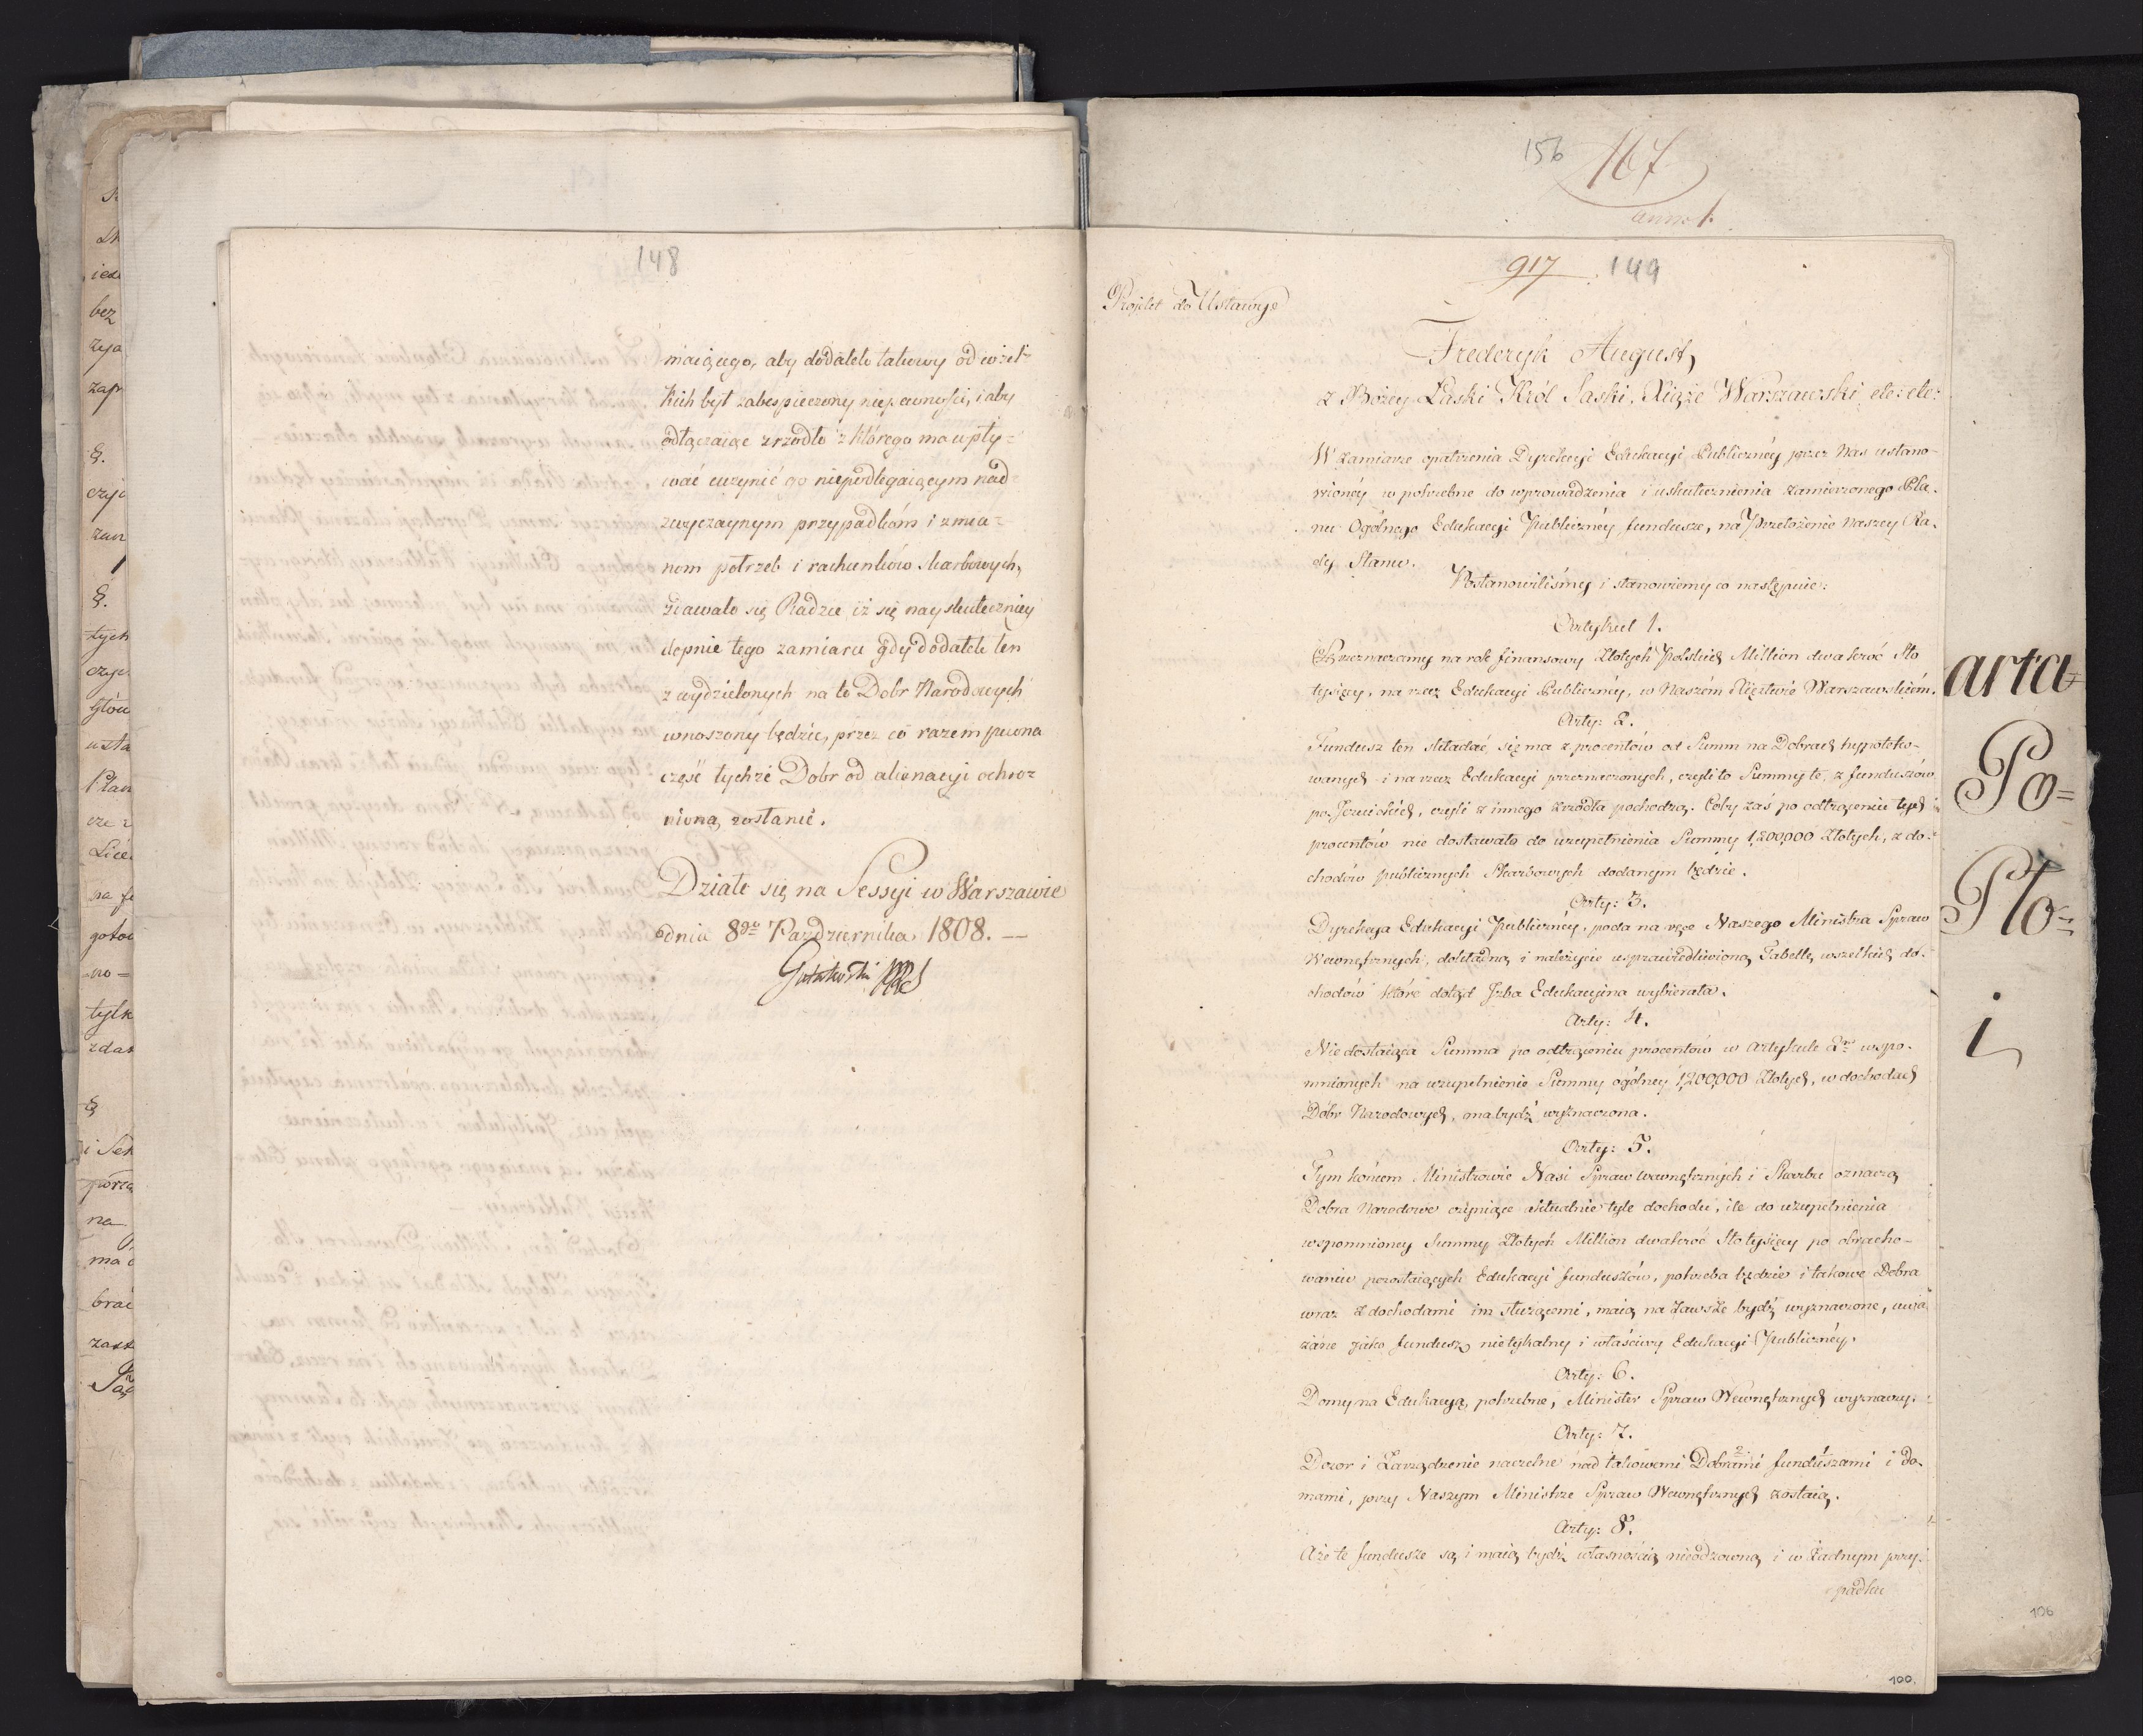 148
maiącego, aby dodatek takowy od wszel-
kich był zabespieczony niepewności, i aby
odłączaiąc zrzodło z którego ma wpły-
wać uczynić go niepodlegaiącym nad-
zwyczaynym przypadkóm i zmia-
nom potrzeb i rachunków skarbowych,
zdawało się Radzie iż się nayskuteczniey
dopnie tego zamiaru gdy dodatek ten
z wydzielonych na to Dobr Narodowych
wnoszony będzie, przez co razem pewna
część tychże Dobr od alienacyi ochro-
niona zostanie.
Działo się na Sessyi w Warszawie
dnia 8go Pazdziernika 1808. —
Gutakowski
156 167
anno 1.
917 149
Projekt do Ustawy
Frederyk August,
z Bożey Łaski Król Saski, Xiąże Warszawski, etc: etc:
W zamiarze opatrzenia Dyrekcyi Edukacyi Publiczney przez Nas ustano-
wioney w potrzebne do wprowadzenia i uskutecznienia zamierzonego Pla-
nu Ogólnego Edukacyi Publiczney fundusze, na Przełożenie Naszey Ra-
dy Stanu.
Postanowiliśmy i stanowiemy co następuie:
Artykuł 1.
Przeznaczamy na rok finansowy Złotych Polskich Million dwakroć sto
tysięcy, na rzecz Edukacyi Publiczney, w Naszém Xięztwie Warszawskiém.
Arty: 2.
Fundusz ten składać się ma z procentów od Summ na Dobrach hypoteko-
wanych i na rzecz Edukacyi przeznaczonych, czyli to Summy te, z funduszów
po-Jezuickich, czyli z innego zrzódła pochodzą. Coby zaś po odtrąceniu tych
procentów nie dostawało do uzupełnienia Summy 1,200,000 Złotych, z do-
chodów publicznych Skarbowych dodanym będzie.
Arty: 3.
Dyrekcya Edukacyi Publiczney, poda na ręce Naszego Ministra Spraw
Wewnętrznych, dokładną i należycie usprawiedliwioną Tabellę wszelkich do-
chodów które dotąd Jzba Edukacyina wybierała.
Arty: 4.
Niedostaiąca Summa po odtrąceniu procentów w Artykule 2m wspo-
mnionych na uzupełnienie Summy ogólney 1,200,000 Złotych, w dochodach
Dóbr Narodowych, ma bydź wyznaczona.
Arty: 5.
Tym końcem Ministrowie Nasi Spraw wewnętrznych i Skarbu oznaczą
Dobra Narodowe czyniące aktualnie tyle dochodu, ile do uzupełnienia
wspomnioney Summy Złotych Million dwakroć Sto tysięcy po obracho-
waniu pozostaiących Edukacyi funduszów, potrzeba będzie i takowe Dobra
wraz z dochodami im służącemi, maią na zawsze bydź wyznaczone, uwa-
żane jako fundusz nietykalny i właściwy Edukacyi Publiczney.
Arty: 6.
Domy na Edukacyą potrzebne, Minister Spraw Wewnętrznych wyznaczy.
Arty: 7.
Dozor i Zarządzenie naczelne nad takowemi Dobrami funduszami i do-
mami, przy Naszym Ministrze Spraw Wewnętrznych zostaią.
Arty: 8.
Aże te fundusze są i maią bydź własnością nieodzowną i w żadnym przy-
padku
100.
arta
Po=
Sto=
i
106